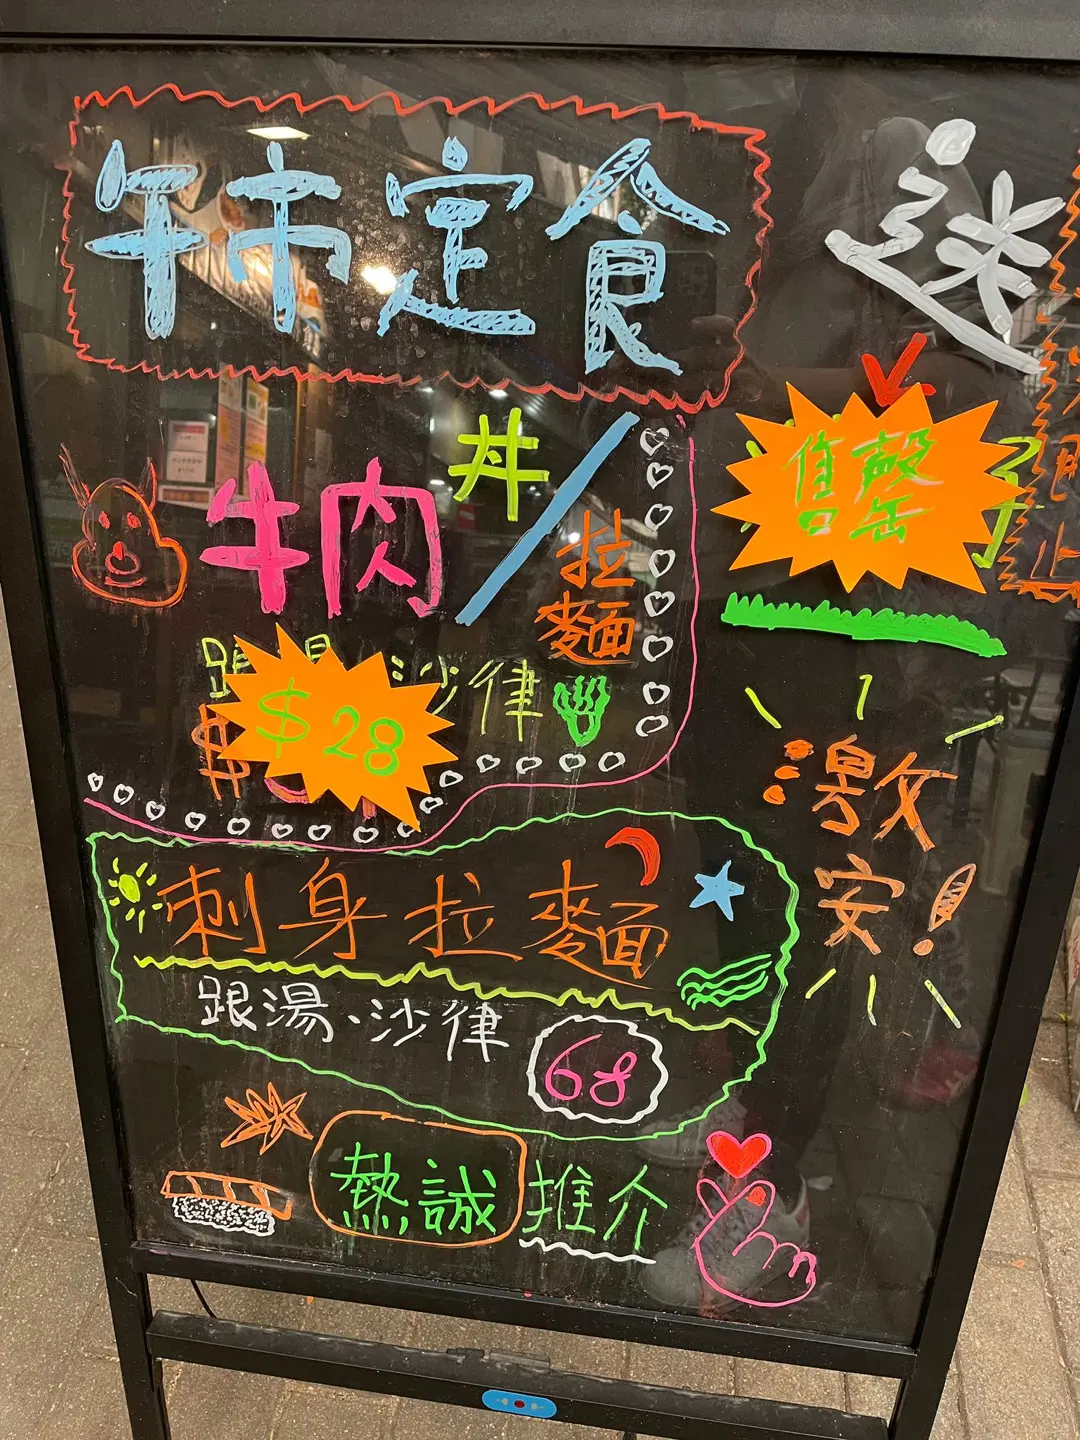 午市定食
牛肉丼/拉麵
跟湯、沙律
$28
刺身拉麵
跟湯、沙律
68
熱誠推介
送
售罄
激安!